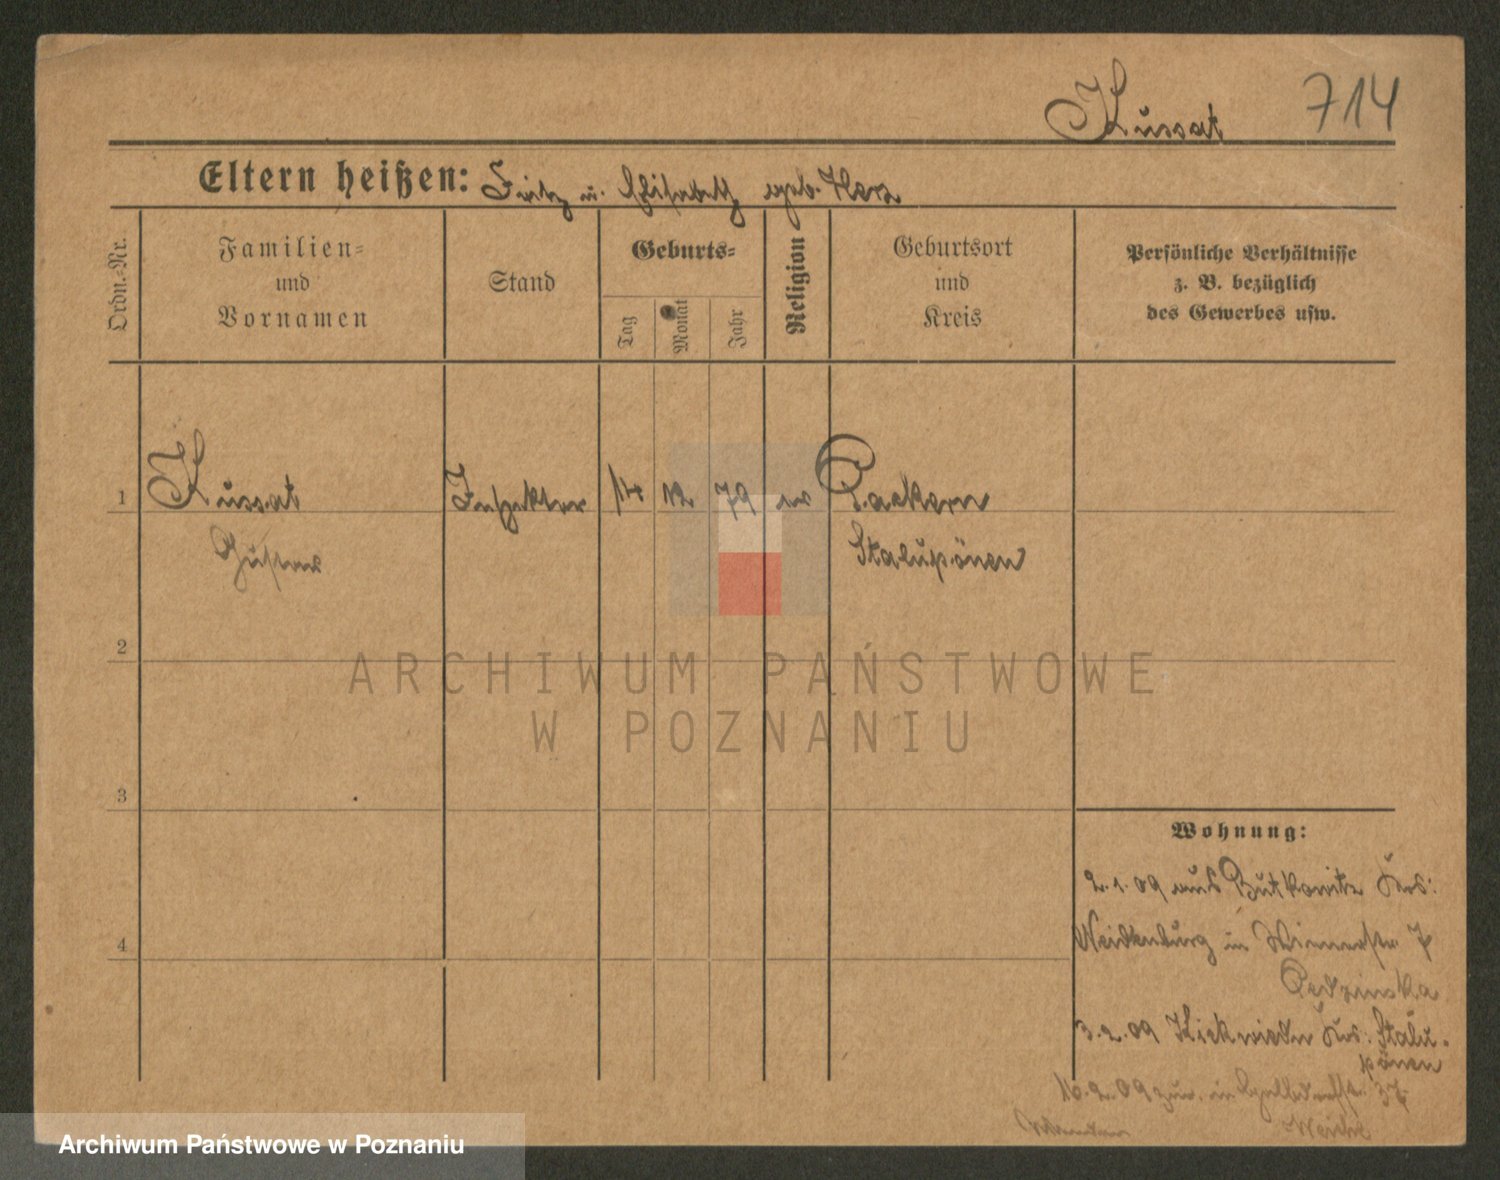 Kussat 714
Eltern heißen: Fritz u. Elisabeth geb.
Ordn.-Nr.
Familien-
und
Vornamen
Stand
Geburts-
Tag
Monat
Jahr
Religion
Geburtsort
und
Kreis
Persönliche Verhältnisse
z. B. bezüglich
des Gewerbes usw.
1 Kussat Inspektor 14 12 79 ev Packern
Gustav Stalupönen
2
3
4
Wohnung:
2.1.09 aus Butkowitz Krs:
Neidenburg in 7
3.2.09 Kickwieden Krs: Stalu-
pönen
16.2.09 zur. in 37
ARCHIWUM PAŃSTWOWE
W POZNANIU
Archiwum Państwowe w Poznaniu